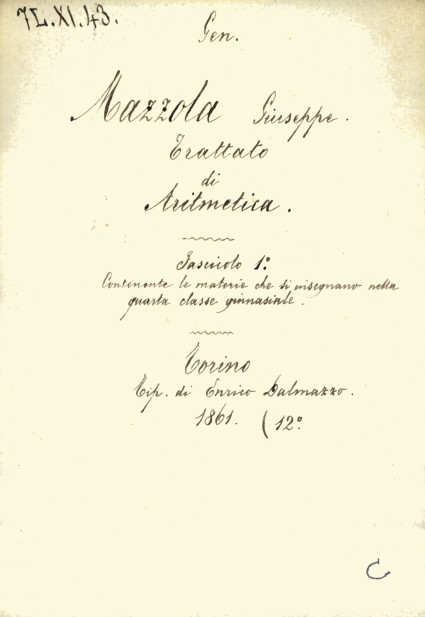 7L.XI.43.
Gen.
Mazzola Giuseppe.
Trattato
di
Aritmetica.
Fascicolo 1º.
Contenente le materie che si insegnano nella
quarta classe ginnasiale.
Torino
Tip. di Enrico Dalmazzo.
1861. (12º.
C